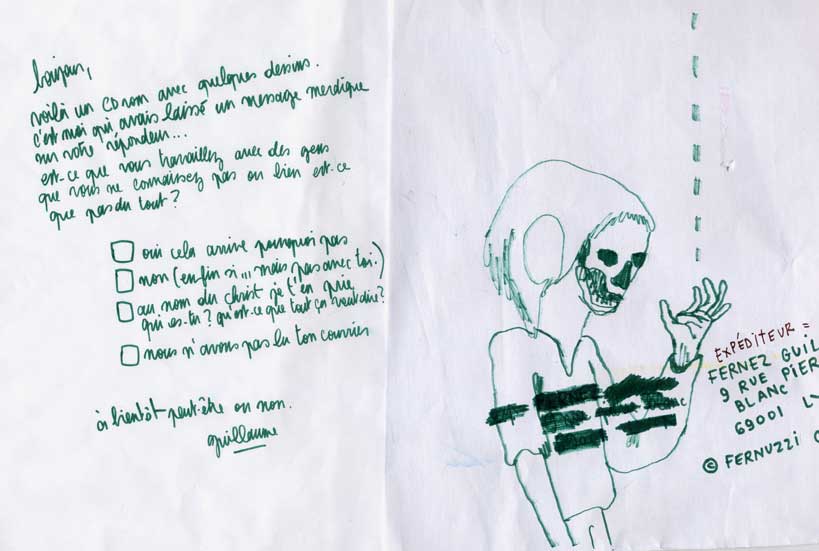 bonjour,
voilà un CD rom avec quelques dessins.
c'est moi qui avais laissé un message merdique
sur votre répondeur...
est-ce que vous travaillez avec des gens
que vous ne connaissez pas ou bien est-ce
que pas du tout ?
oui cela arrive pourquoi pas
non (enfin si... mais pas avec toi.)
au nom du christ je t'en prie
qui es-tu ? qu'est-ce que tout ça veut dire ?
nous n'avons pas lu ton courrier
à bientôt peut-être ou non.
guillaume
EXPÉDITEUR =
FERNEZ GUIL
9 RUE PIER
BLANC
69001 L
© FERNUZZI